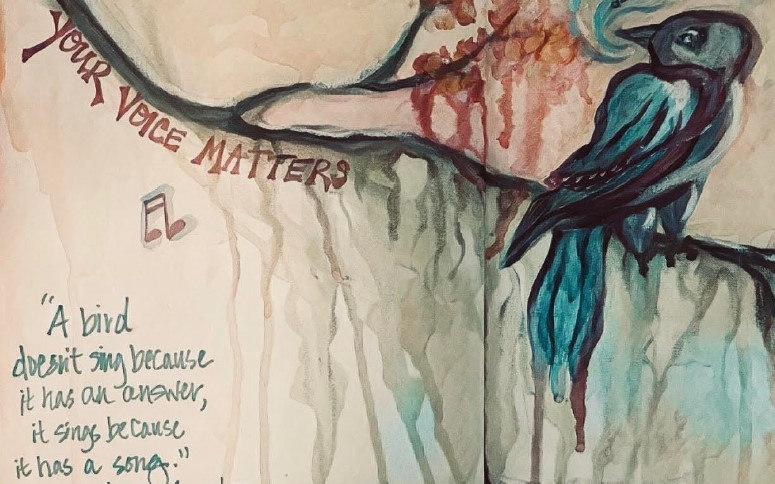 YOUR VOICE MATTERS
"A bird
doesn't sing because
it has an answer,
it sings because
it has a song."